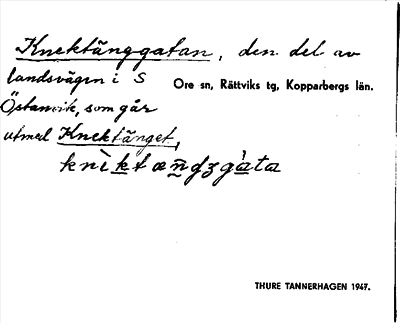 Knektänggatan, den del av
landsvägen i S
Ore sn, Rättviks tg, Kopparbergs län.
Östanvik, som går
utmed Knektänget,
knìktæn̲dzgà̲ta
THURE TANNERHAGEN 1947.